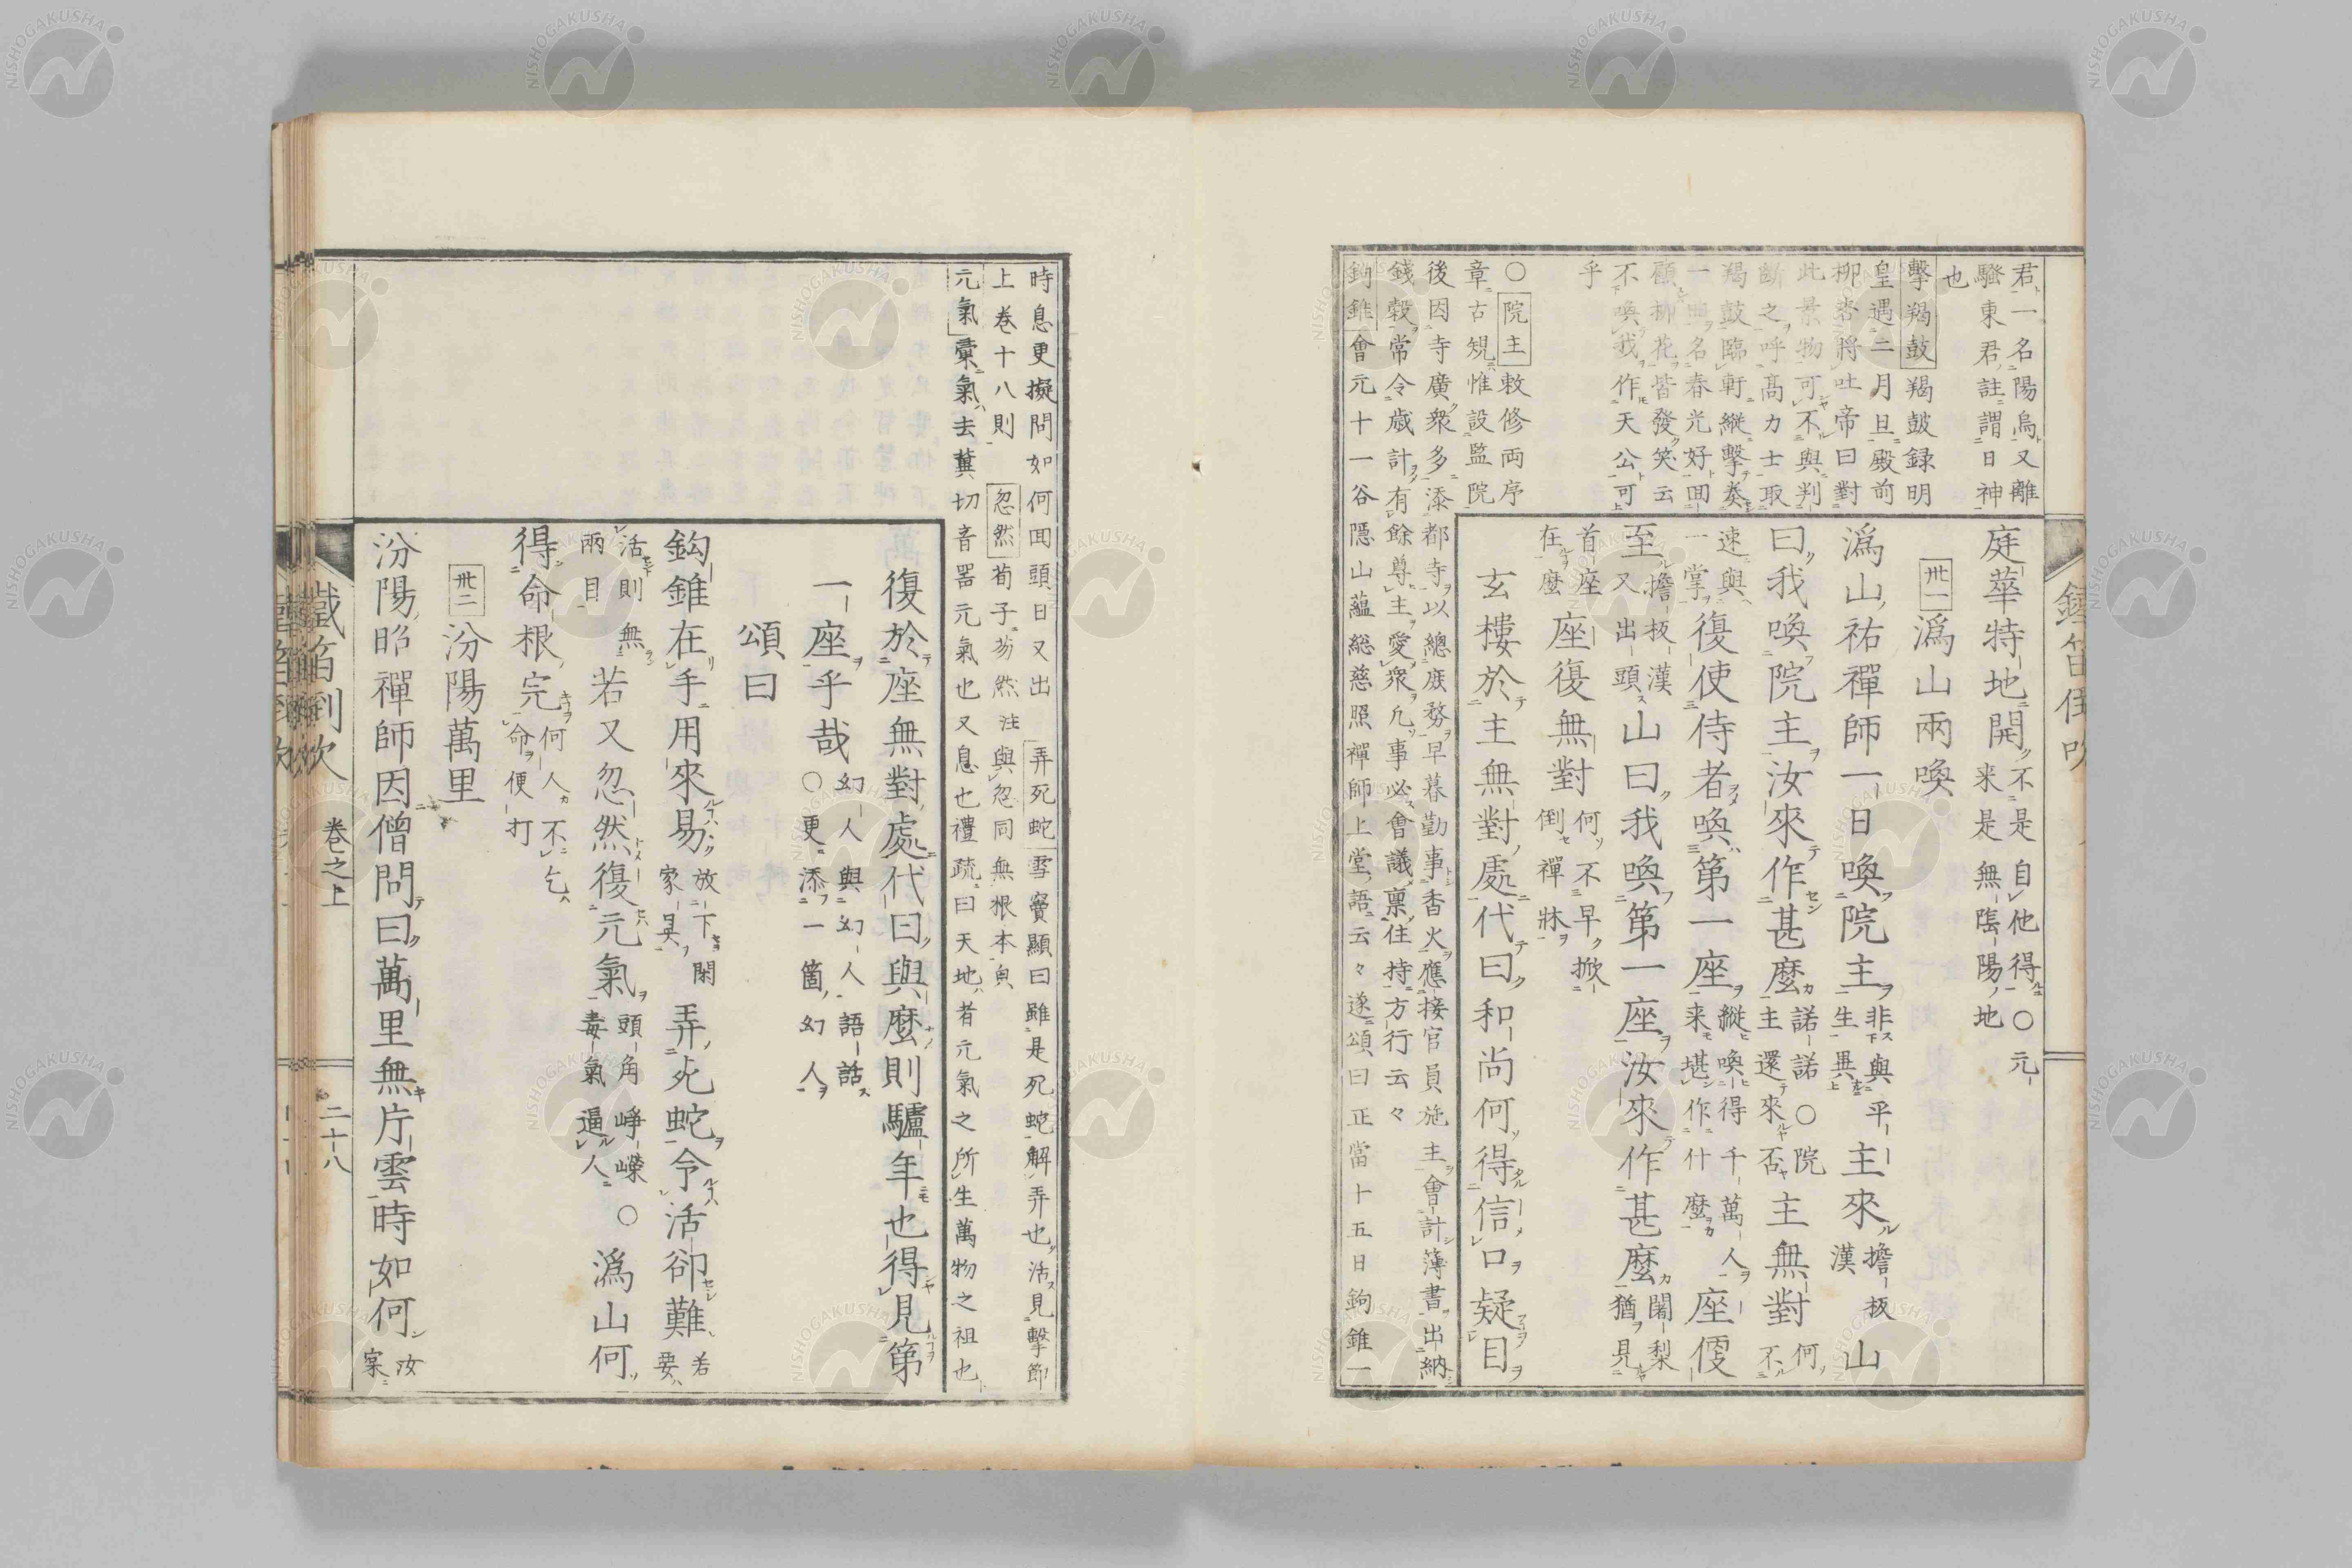 君一名陽烏又離
騷東君註謂日神
也
擊羯鼓羯鼓録明
皇遇二月旦殿前
柳杏將吐帝曰對
此景物可不與判
斷之呼高力士取
羯鼓臨軒縱擊奏
一曲名春光好回
顧柳花皆發笑云
不喚我作天公可
乎
○院主敕修両序
章古規惟設監院
後因寺廣衆多添都寺以總庶務早暮勤事香火應接官員施主會計簿書出納
錢穀常令歳計有餘尊主愛衆凡事必會議稟住持方行云々
鉤錐會元十一谷隱山蘊総慈照禪師上堂語云々遂頌曰正當十五日鉤錐一
庭華特地開不是自他得○元
来是無陰陽地
卅一 潙山兩喚
潙山祐禪師一日喚院主非與平
生異主來擔板
漢山
曰我喚院主汝來作甚麼諾諾○院
主還來否主無對何
不
速與
一掌復使侍者喚第一座縱喚得千萬人
来堪作什麼座便
至擔板漢
又出頭山曰我喚第一座汝來作甚麼闍梨
猶見
首座
在麼座復無對何不早掀
倒禪牀
玄樓於主無對處代曰和尚何得信口疑目
鐵笛倒吹
時息更擬問如何回頭日又出 弄死蛇雪竇顯曰雖是死蛇解弄也活見擊節
上卷十八則 忽然荀子芴然注與忽同無根本皃
元氣彙氣去冀切音器元氣也又息也禮疏曰天地者元氣之所生萬物之祖也
復於座無對處代曰與麼則驢年也得見第
一座乎哉幻人與幻人語話
○更添一箇幻人
頌曰
鈎錐在手用來易放下閑
家具弄死蛇令活卻難若
要
活則無
兩目若又忽然復元氣頭角崢嶸
毒氣逼人○潙山何
得命根完何人不乞
命便打
卅二 汾陽萬里
汾陽昭禪師因僧問曰萬里無片雲時如何汝
寀
鐵笛倒吹 卷之上 二十八